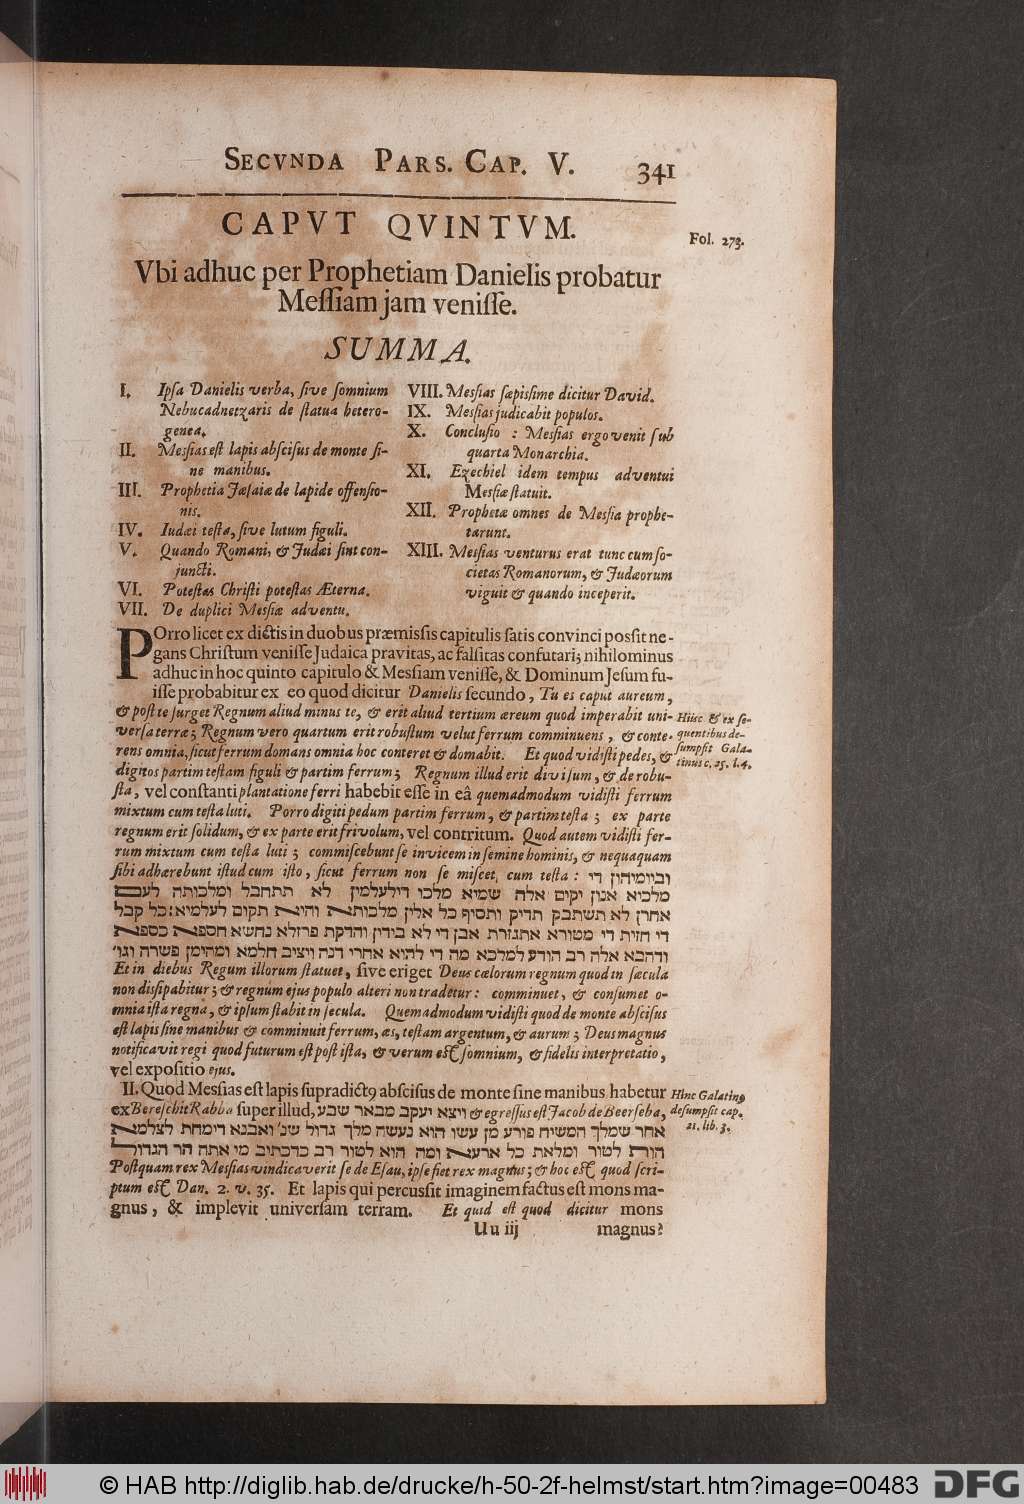 SECVNDA PARS. CAP. V. 341
CAPVT QVINTVM.
Fol. 273.
Vbi adhuc per Prophetiam Danielis probatur
Meſſiam jam veniſſe.
SUMMA.
I. Ipſa Danielis verba, ſive ſomnium
Nebucadnetzaris de ſtatua hetero-
genea.
II. Meſsias eſt lapis abſciſus de monte ſi-
ne manibus.
III. Prophetia Jæſaiæ de lapide offenſio-
nis.
IV. Iudæi teſta, ſive lutum figuli.
V. Quando Romani, & Judæi ſint con-
juncti.
VI. Poteſtas Chriſti poteſtas Æterna.
VII. De duplici Meſsiæ adventu.
VIII. Meſsias ſæpiſsime dicitur David.
IX. Meſsias judicabit populos.
X. Concluſio : Meſsias ergo venit ſub
quarta Monarchia.
XI. Ezechiel idem tempus adventui
Meſsiæ ſtatuit.
XII. Prophetæ omnes de Meſsia prophe-
tarunt.
XIII. Meſsias venturus erat tunc cum ſo-
cietas Romanorum, & Judæorum
viguit & quando inceperit.
POrro licet ex dictis in duobus præmiſsis capitulis ſatis convinci poſsit ne-
gans Chriſtum veniſſe Judaica pravitas, ac falſitas confutari; nihilominus
adhuc in hoc quinto capitulo & Meſsiam veniſſe, & Dominum Jeſum fu-
iſſe probabitur ex eo quod dicitur Danielis ſecundo, Tu es caput aureum,
& poſt te ſurget Regnum aliud minus te, & erit aliud tertium æreum quod imperabit uni-
verſæ terræ; Regnum vero quartum erit robuſtum velut ferrum comminuens, & conte-
rens omnia, ſicut ferrum domans omnia hoc conteret & domabit. Et quod vidiſti pedes, &
digitos partim teſtam figuli & partim ferrum; Regnum illud erit diviſum, & de robu-
ſta, vel conſtanti plantatione ferri habebit eſſe in eâ quemadmodum vidiſti ferrum
mixtum cum teſta luti. Porro digiti pedum partim ferrum, & partim teſta ; ex parte
regnum erit ſolidum, & ex parte erit frivolum, vel contritum. Quod autem vidiſti fer-
rum mixtum cum teſta luti ; commiſcebunt ſe invicem in ſemine hominis, & nequaquam
ſibi adhærebunt iſtud cum iſto, ſicut ferrum non ſe miſcet cum teſta : וביומיהון די
מלכיא אנון יקים אלה שמיא מלכו דילעלמין לא תתחבל ומלכותה לעם
אחרן לא תשתבק תדיק ותסיף כל אלין מלכותא והיא תקום לעלמיא: כל קבל
די חזית די מטורא אתגזרת אבן די לא בידין והדקת פרזלא נחשא חספא כספא
ודהבא אלה רב הודע למלכא מה די להוא אחרי דנה ויציב חלמא ומהימן פשרה וגו׳
Et in diebus Regum illorum ſtatuet, ſive eriget Deus cælorum regnum quod in ſæcula
non diſſipabitur ; & regnum ejus populo alteri non tradetur : comminuet, & conſumet o-
mnia iſta regna, & ipſum ſtabit in ſecula. Quemadmodum vidiſti quod de monte abſciſus
eſt lapis ſine manibus & comminuit ferrum, æs, teſtam argentum, & aurum ; Deus magnus
notificavit regi quod futurum eſt poſt iſta, & verum eſt ſomnium, & fidelis interpretatio,
vel expoſitio ejus.
Hinc & ex ſe-
quentibus de-
ſumpſit Gala-
tinus c. 25. l. 4.
II. Quod Meſsias eſt lapis ſupradictꝰ abſciſus de monte ſine manibus habetur
ex Bereſchit Rabba ſuper illud, ויצא יעקב מבאר שבע & egreſſus eſt Jacob de Beerſeba,
אחר שמלך המשיח פורע מן עשו הוא נעשה מלך גדול שנ׳ ואבנא דימחת לצלמא
הות לטור ומלאת כל ארעא ומה הוא לטור רב כדכתוב מי אתה הר הגדול
Poſtquam rex Meſsias vindicaverit ſe de Eſau, ipſe fiet rex magnus ; & hoc eſt quod ſcri-
ptum eſt Dan. 2. v. 35. Et lapis qui percuſsit imaginem factus eſt mons ma-
gnus, & implevit univerſam terram. Et quid eſt quod dicitur mons
Hinc Galatinꝰ
deſumpſit cap.
21. lib. 3.
Uu iij magnus?
© HAB http://diglib.hab.de/drucke/h-50-2f-helmst/start.htm?image=00483
DFG